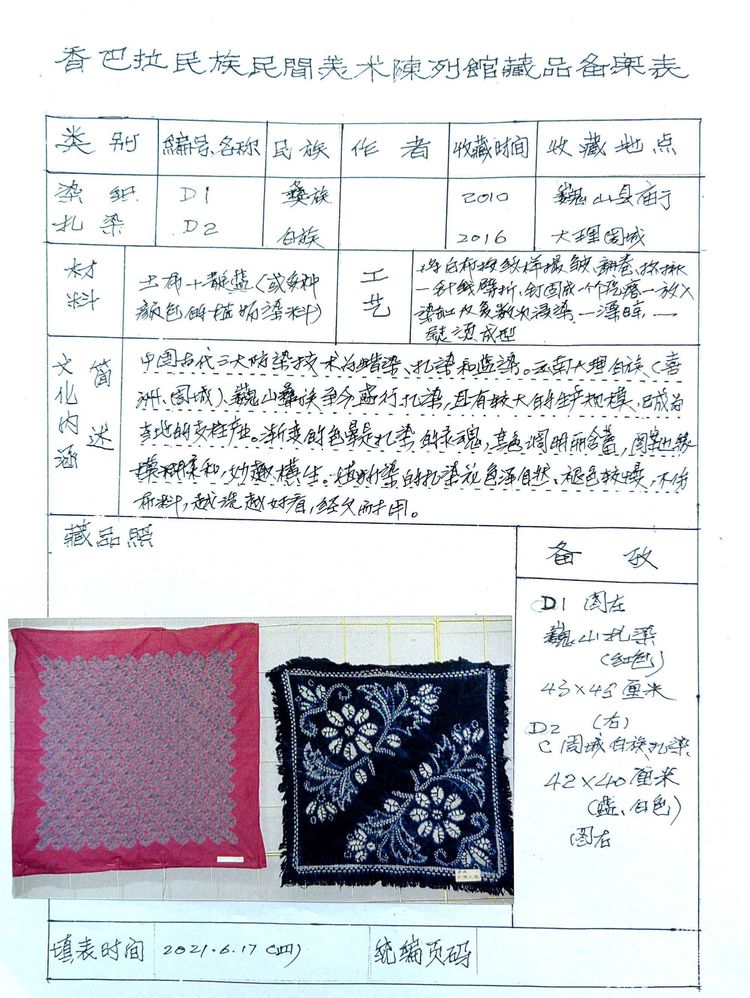 香巴拉民族民間美术陳列館藏品备案表
类别 編号、名称 民族 作者 收藏时间 收藏地点
染织 D1 彝族 2010 巍山县庙于
扎染 D2 白族 2016 大理周城
材料 土布+靛蓝(或多种
颜色的植物染料)
工艺 将白布按纹样撮皱、翻卷、
一针线 一放入
染缸 多数次浸染一漂晾一
成型
文化内涵 简述
中国古代三大防染技术为蜡染、扎染和蓝染。云南大理白族(喜
洲、周城)、巍山彝族至今盛行扎染,且有较大的生产规模,已成为
当地的支柱产业。渐变的色晕是扎染的灵魂,其色调明丽含蓄,图案边缘
模糊柔和,妙趣横生。植物染的扎染花色泽自然、褪色较慢,不伤
布料,越洗越好看,经久耐用。
藏品照
备攷
D1 图左
巍山扎染
(红色)
43×43厘米
(右)
D2
C 周城白族扎染
42×40厘米
(蓝、白色)
图右
填表时间 2021.6.17(四) 統編页码